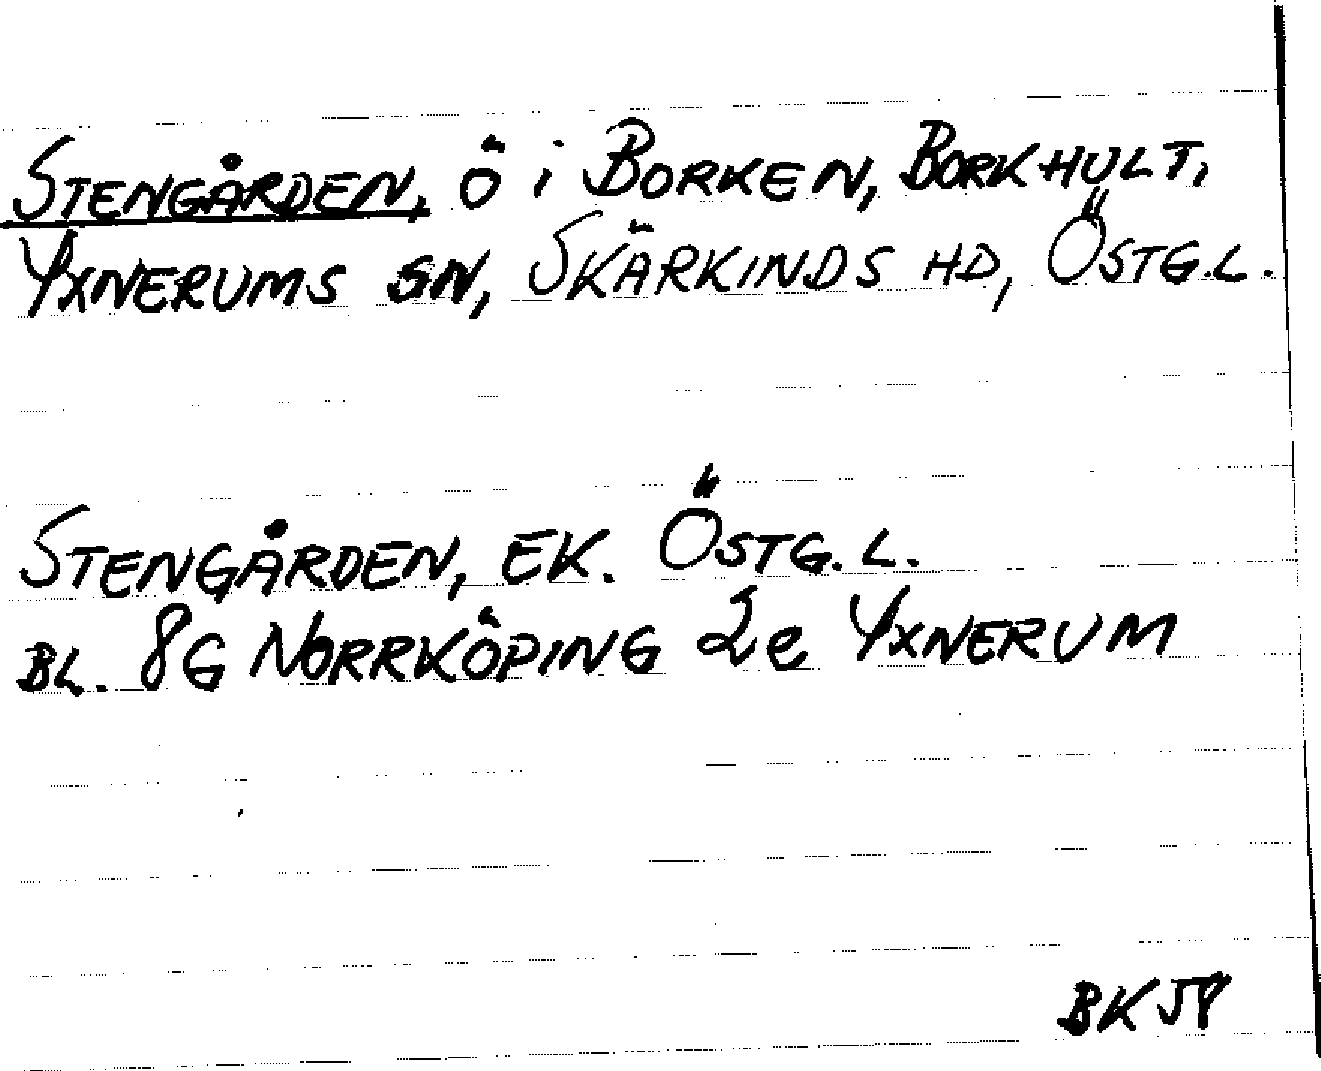 STENGÅRDEN, Ö i BORKEN, BORKHULT,
YXNERUMS SN, SKÄRKINDS HD, ÖSTG.L.
STENGÅRDEN, EK. ÖSTG.L.
BL. 8G NORRKÖPING 2e YXNERUM